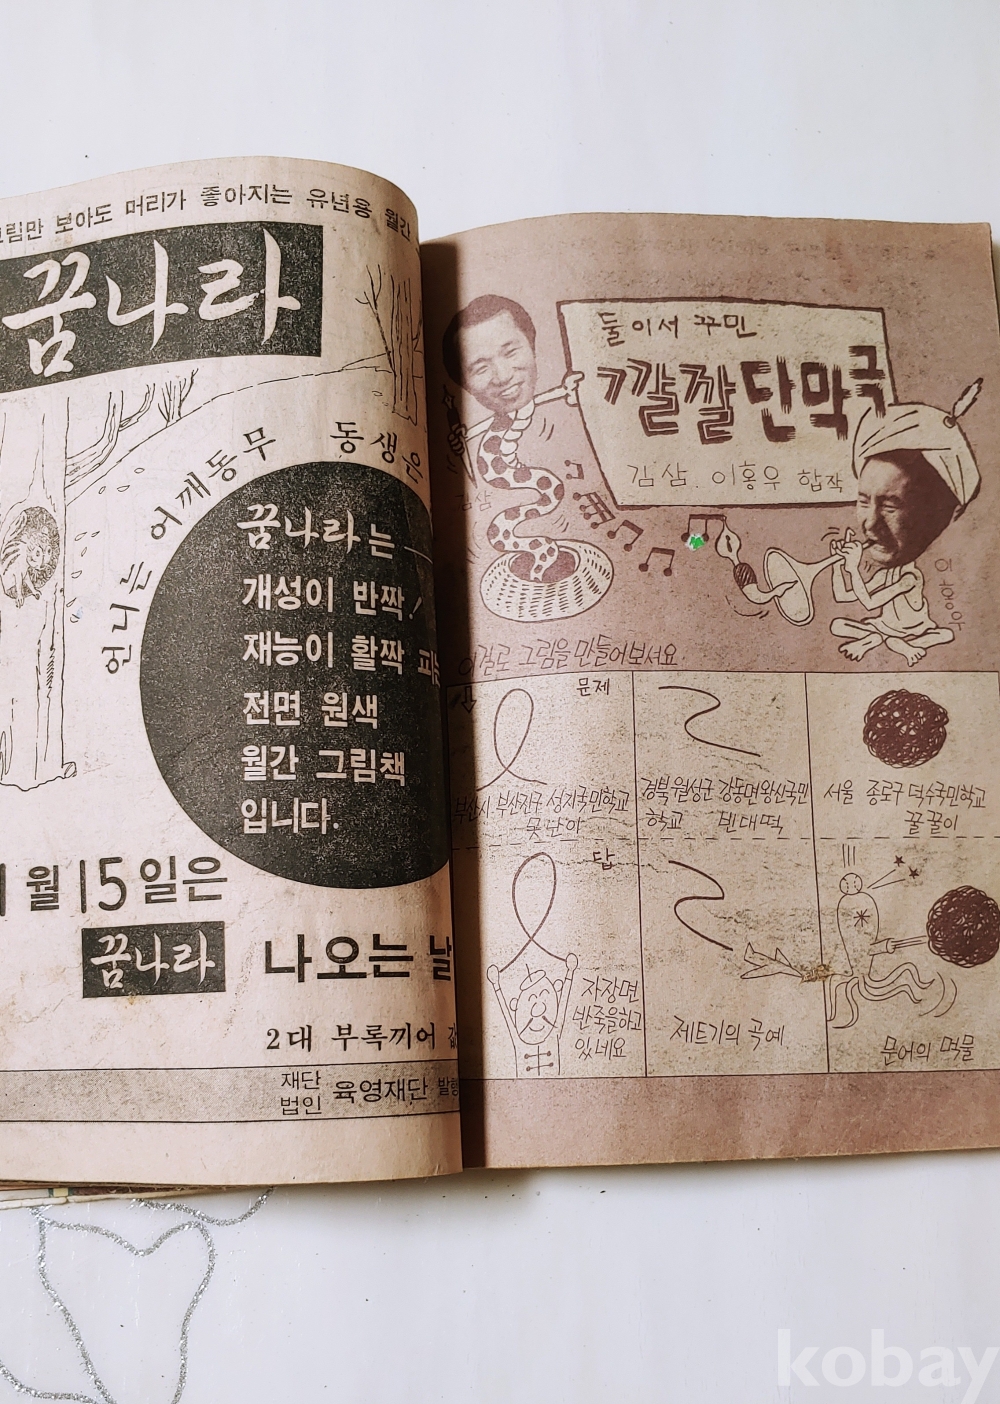 그림만 보아도 머리가 좋아지는 유년용 월간
꿈나라
언니는 어깨동무 동생은
꿈나라는
개성이 반짝!
재능이 활짝
전면 원색
월간 그림책
입니다.
월 15일은
꿈나라 나오는 날
2대 부록끼어
재단
법인 육영재단
둘이서 꾸민
깔깔단막극
김삼. 이홍우 합작
김삼
이걸로 그림을 만들어보셔요
문제
부산시 부산진구 성지국민학교
못난이
경북 월성군 강동면 왕신국민
학교 빈대떡
서울 종로구 덕수국민학교
꿀꿀이
답
자장면
반죽을하고
있네요
제트기의 곡예
문어의 먹물
kobay